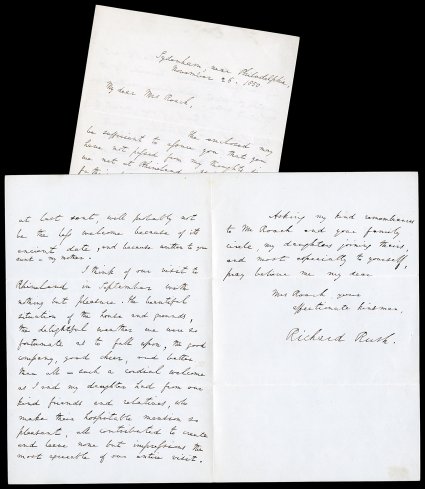 Sydenham, near Philadelphia,
November 26. 1850
My dear Mrs Roach,
The enclosed may
be sufficient to assure you that you
have not passed from my thoughts
we met at Rhineland
at last sent, will probably not
be the less welcome because of its
ancient date, and because written to your
aunt - my mother.
I think of our visit to
Rhineland in September with
nothing but pleasure. The beautiful
situation of the house and grounds,
the delightful weather we were so
fortunate as to fall upon, the good
company, good cheer, and better
than all - such a cordial welcome
as I and my daughter had from our
kind friends and relatives, who
make their hospitable mansion so
pleasant, all contributed to create
and leave none but impressions the
most agreeable of our entire visit.
Asking my kind remembrances
to Mr Roach and your family
circle, my daughters joining theirs,
and most especially to yourself,
pray believe me my dear
Mrs Roach, your
affectionate kinsman,
Richard Rush.